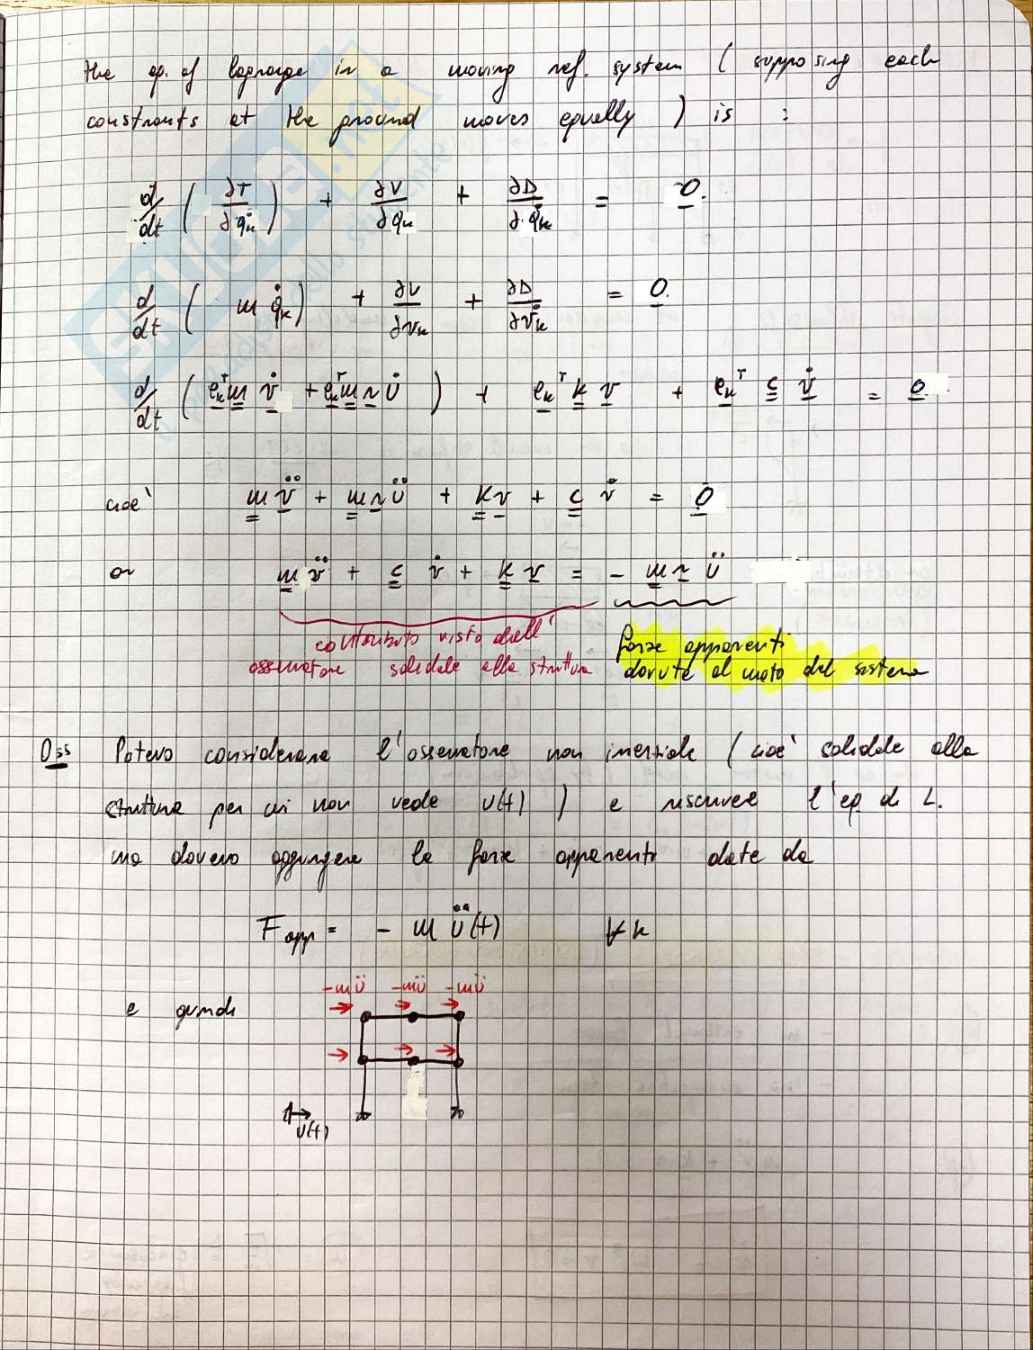 the eq. of lagrange in a moving ref. system ( supposing each
constraints at the ground moves equally ) is :
d/dt ( ∂T/∂q̇k ) + ∂V/∂qk + ∂D/∂q̇k = 0.
d/dt ( m q̇k ) + ∂V/∂vk + ∂D/∂v̇k = 0.
d/dt ( ek^T m v̇ + ek^T m r u̇ ) + ek^T k v + ek^T c v̇ = 0.
cioè m v̈ + m r ü + k v + c v̇ = 0
or m v̈ + c v̇ + k v = - m r ü
contributo visto dall' forze apparenti
osservatore solidale alla struttura dovute al moto del sistema
Oss Potevo considerare l'osservatore non inerziale ( cioè solidale alla
struttura per cui non vede u(t) ) e riscrivere l'eq. di L.
ma dovevo aggiungere le forze apparenti date da
Fapp = - m ü(t) ∀ k
-mü -mü -mü
e quindi
u(t)